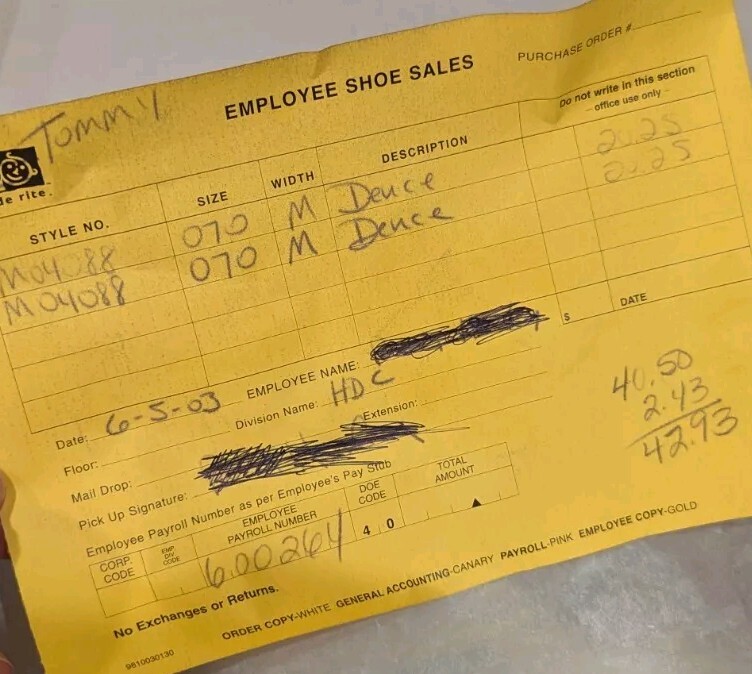 Tommy
EMPLOYEE SHOE SALES
PURCHASE ORDER #
de rite.
Do not write in this section
- office use only -
STYLE NO. SIZE WIDTH DESCRIPTION
M04088 070 M Deuce 20.25
M04088 070 M Deuce 20.25
$ DATE
EMPLOYEE NAME:
Date: 6-5-03
Division Name: HDC
Floor: Extension:
Mail Drop:
Pick Up Signature:
40.50
2.43
42.93
Employee Payroll Number as per Employee's Pay Stub
CORP. CODE EMP DIV CODE EMPLOYEE PAYROLL NUMBER DOE CODE TOTAL AMOUNT
600264 4 0
No Exchanges or Returns.
ORDER COPY-WHITE GENERAL ACCOUNTING-CANARY PAYROLL-PINK EMPLOYEE COPY-GOLD
9810030130